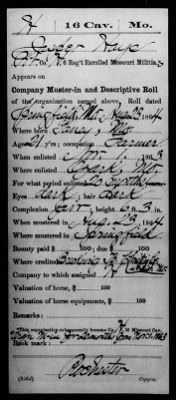 H | 16 Cav. | Mo.
Pvt., Co. H, 6 Reg't Enrolled Missouri Militia.
Appears on
Company Muster-in and Descriptive Roll
of the organization named above. Roll dated
Springfield, Mo., Aug 23, 1864
Where born Taney, Mo.
Age 21 y'rs; occupation Farmer
When enlisted Nov. 1, 1863
Where enlisted Ozark, Mo.
For what period enlisted 20 months
Eyes dark; hair dark
Complexion fair; height ft. 3 in.
When mustered in Aug. 23, 1864
Where mustered in Springfield
Bounty paid $ 100; due $ 100
Where credited
To what company assigned H
Valuation of horse, $ 100
Valuation of horse equipments, $ 100
Remarks:
This organization subsequently became Co. H, 16 Missouri Cav.
Book mark:
Rochester
(343d) Copyist.